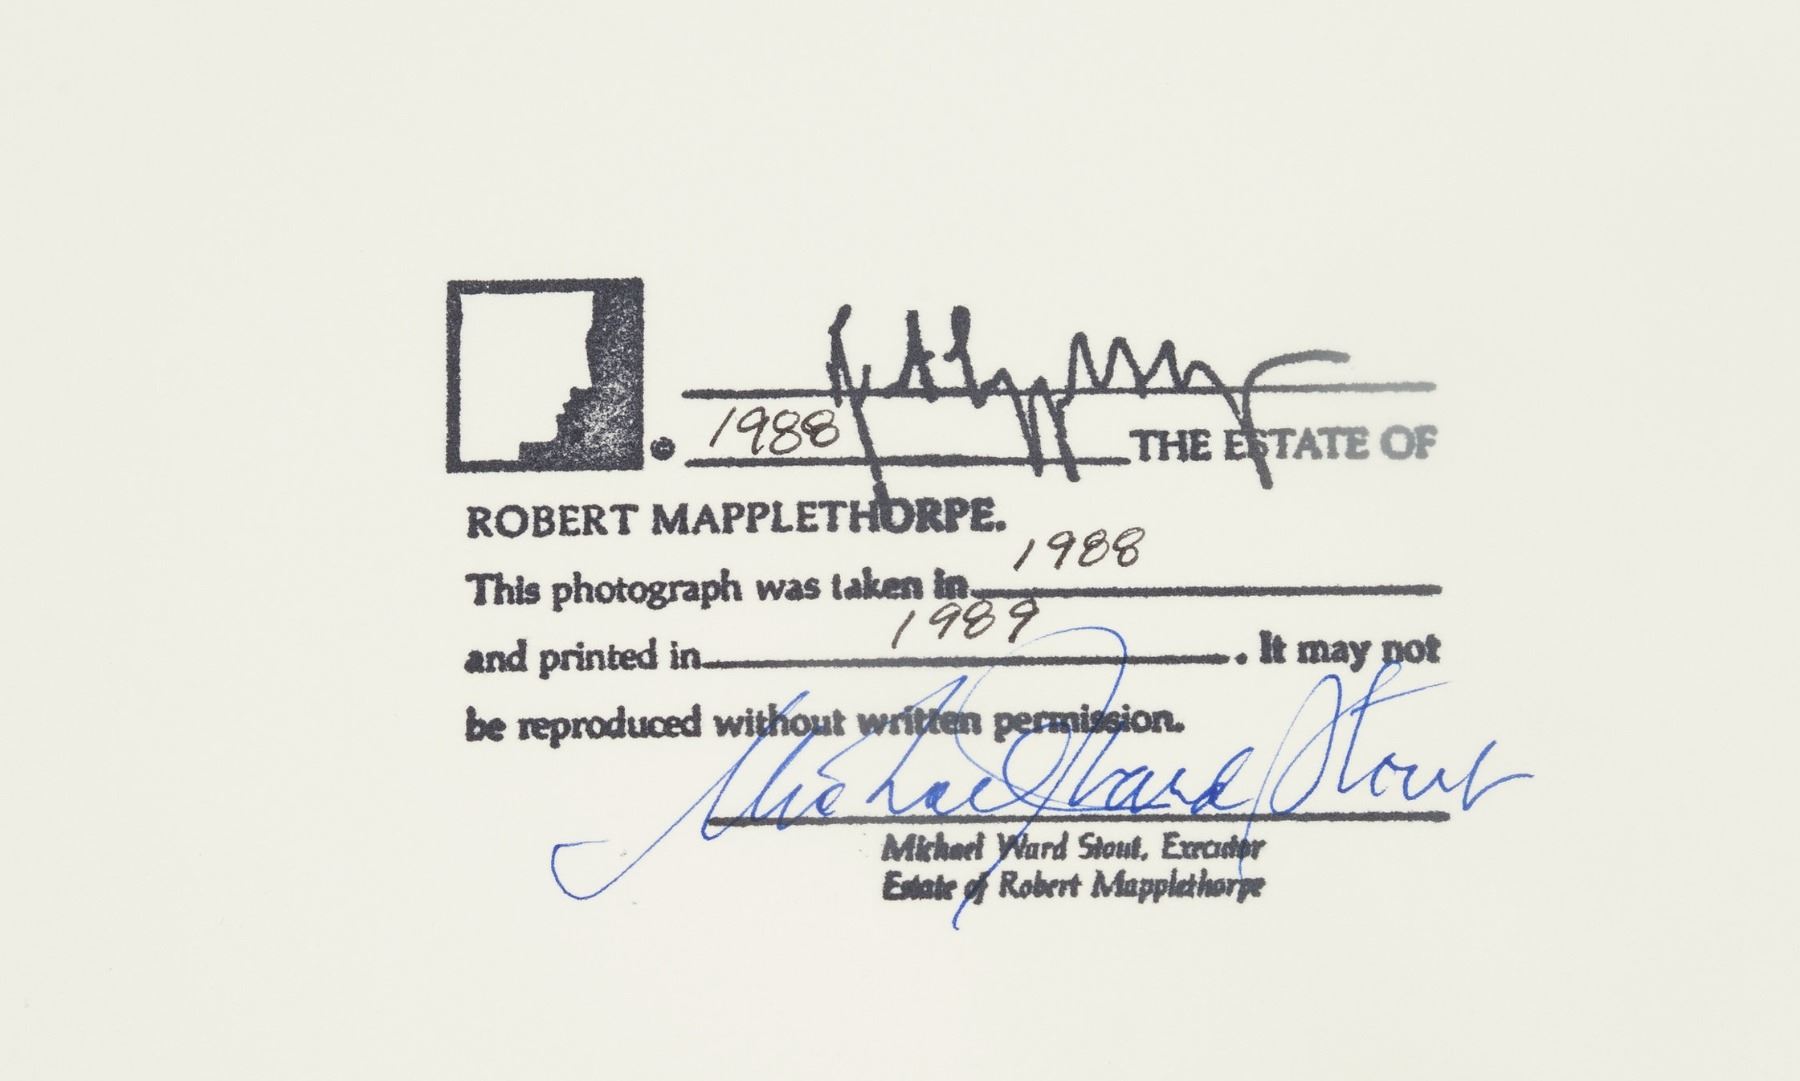 © 1988 THE ESTATE OF
ROBERT MAPPLETHORPE.
This photograph was taken in 1988
and printed in 1989. It may not
be reproduced without written permission.
Michael Ward Stout
Michael Ward Stout, Executor
Estate of Robert Mapplethorpe